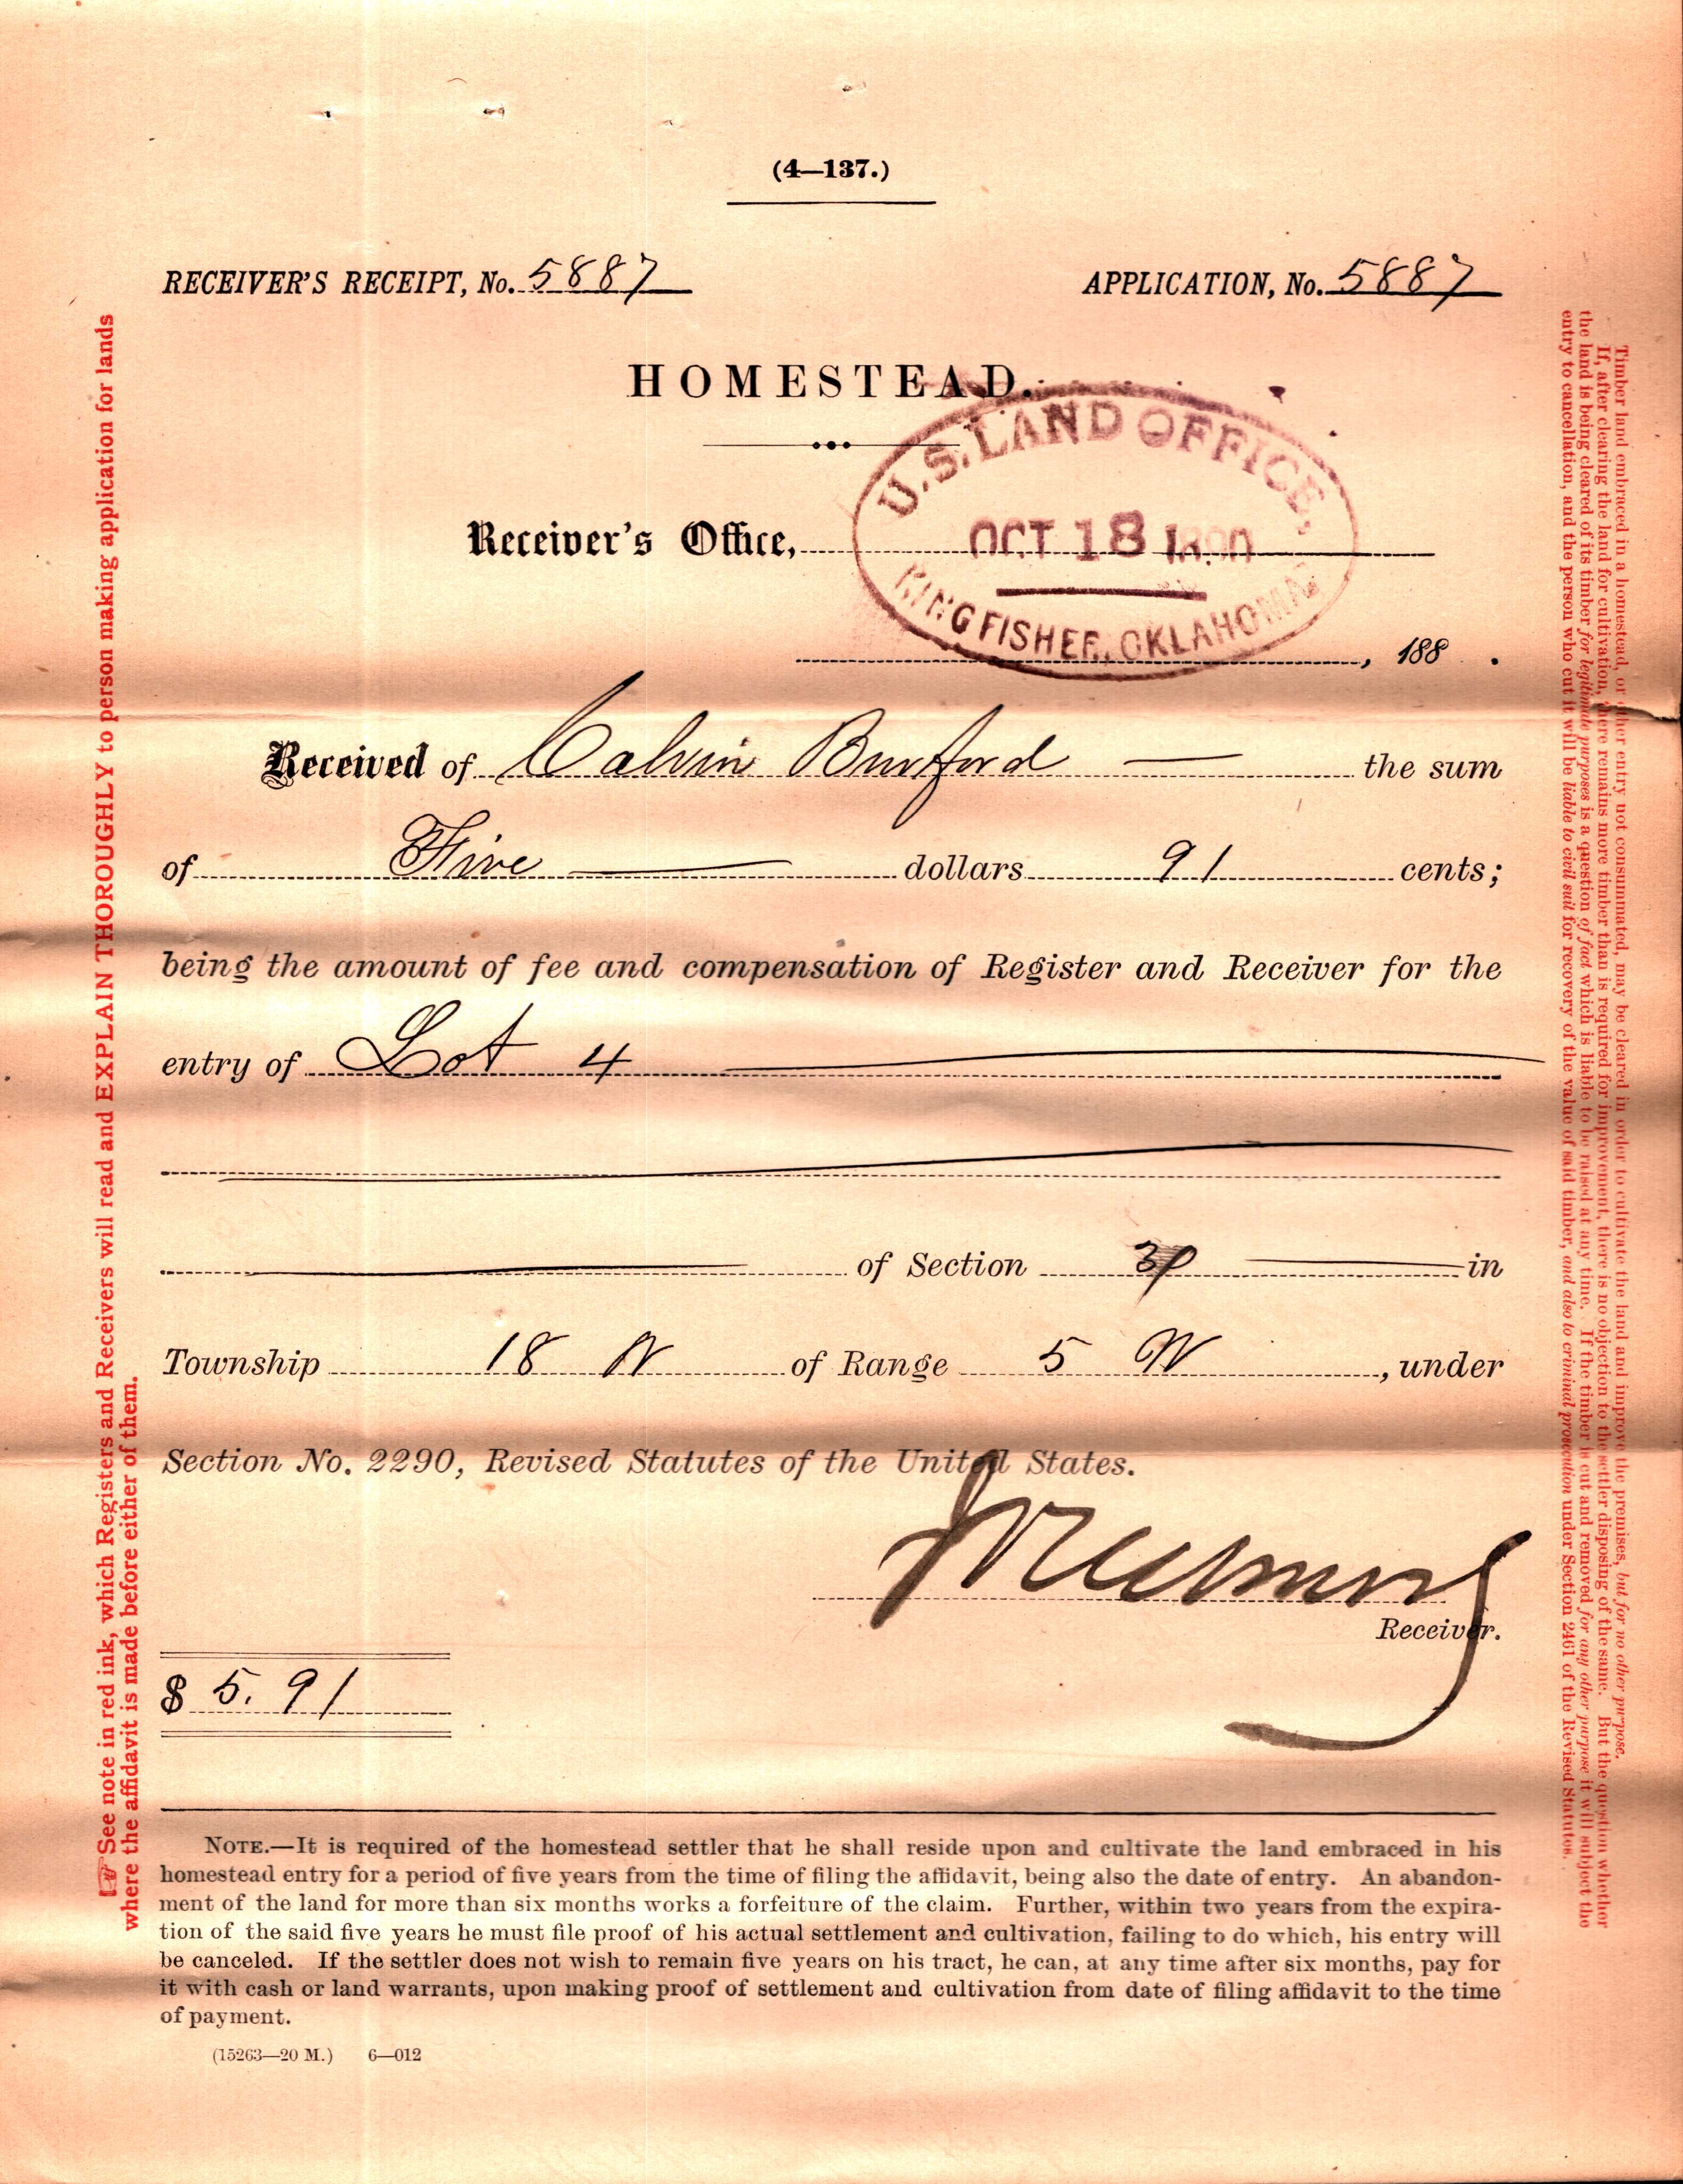 (4—137.)
RECEIVER'S RECEIPT, No. 5887
APPLICATION, No. 5887
HOMESTEAD.
U.S. LAND OFFICE,
OCT 18 1890
KINGFISHER, OKLAHOMA
Receiver's Office,
, 188 .
Received of Calvin Burford — the sum
of Five — dollars 91 cents;
being the amount of fee and compensation of Register and Receiver for the
entry of Lot 4
of Section 30 in
Township 18 N of Range 5 W, under
Section No. 2290, Revised Statutes of the United States.
Receiver.
$ 5.91
NOTE.—It is required of the homestead settler that he shall reside upon and cultivate the land embraced in his
homestead entry for a period of five years from the time of filing the affidavit, being also the date of entry. An abandon-
ment of the land for more than six months works a forfeiture of the claim. Further, within two years from the expira-
tion of the said five years he must file proof of his actual settlement and cultivation, failing to do which, his entry will
be canceled. If the settler does not wish to remain five years on his tract, he can, at any time after six months, pay for
it with cash or land warrants, upon making proof of settlement and cultivation from date of filing affidavit to the time
of payment.
(15263—20 M.) 6—012
☞See note in red ink, which Registers and Receivers will read and EXPLAIN THOROUGHLY to person making application for lands
where the affidavit is made before either of them.
Timber land embraced in a homestead, or other entry not consummated, may be cleared in order to cultivate the land and improve the premises, but for no other purpose.
If, after clearing the land for cultivation, there remains more timber than is required for improvement, there is no objection to the settler disposing of the same. But the question whether
the land is being cleared of its timber for legitimate purposes is a question of fact which is liable to be raised at any time. If the timber is cut and removed for any other purpose it will subject the
entry to cancellation, and the person who cut it will be liable to civil suit for recovery of the value of said timber, and also to criminal prosecution under Section 2461 of the Revised Statutes.